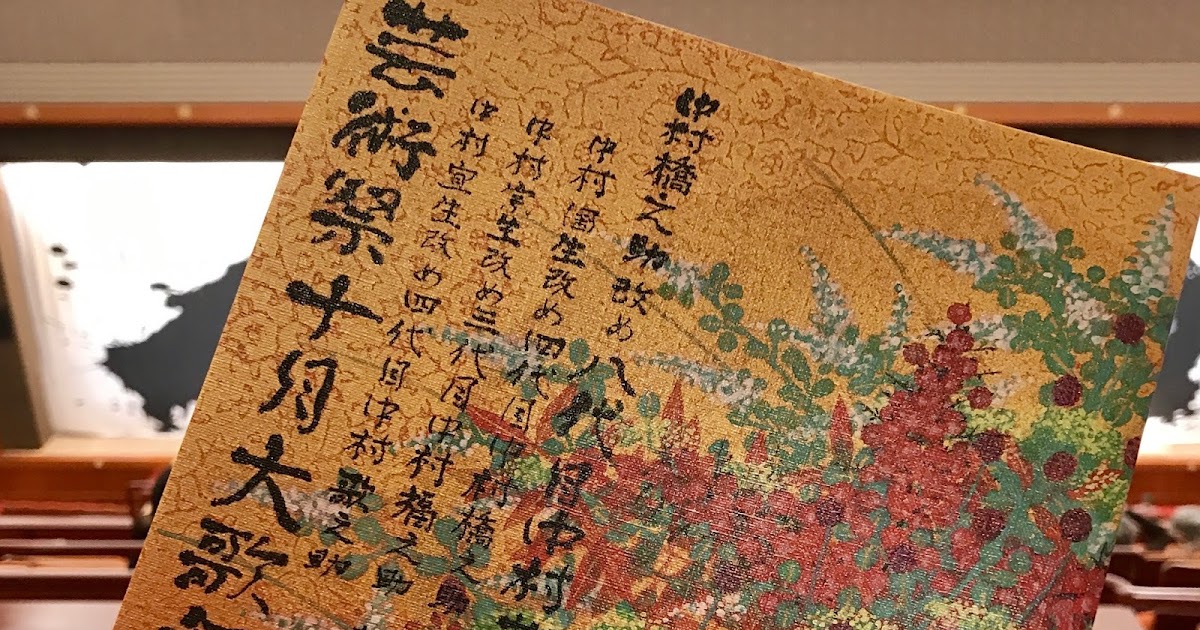 中村橋之助改め八代目中村
中村國生改め四代目中村橋之助
中村宗生改め三代目中村福之助
中村宜生改め四代目中村歌之助
芸術祭十月大歌